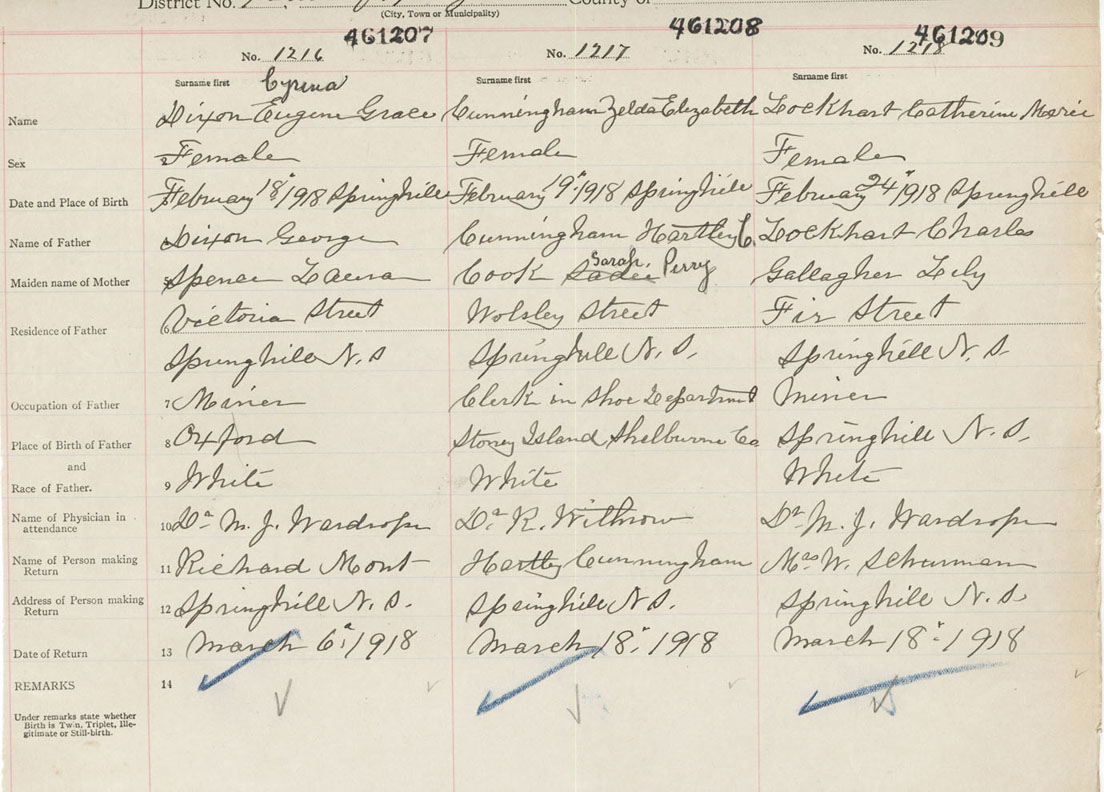 District No.
County of
(City, Town or Municipality)
461207 461208 461209
No. 1216 No. 1217 No. 1218
Surname first Surname first Surname first
Cyrena
Name Dixon Eugene Grace Cunningham Zelda Elizabeth Lockhart Catherine Marie
Sex 2 Female Female Female
Date and Place of Birth February 18" 1918 Springhill February 19" 1918 Springhill February 24" 1918 Springhill
Name of Father Dixon George Cunningham Hartley C. Lockhart Charles
Sarah
Maiden name of Mother 5 Spence Laura Cook Sadie Perry Gallagher Lily
Residence of Father 6 Victoria Street Wolsley Street Fir Street
Springhill N.S Springhill N.S. Springhill N.S.
Occupation of Father 7 Miner Clerk in Shoe Department Miner
Place of Birth of Father 8 Oxford Stoney Island Shelburne Co Springhill N.S.
and
Race of Father. 9 White White White
Name of Physician in
attendance 10 Dr M. J. Wardrope Dr K. Withrow Dr M. J. Wardrope
Name of Person making
Return 11 Richard Mont Hartley Cunningham Mrs W. Schurman
Address of Person making
Return 12 Springhill N.S. Springhill N.S. Springhill N.S
Date of Return 13 March 6" 1918 March 18" 1918 March 18" 1918
REMARKS 14
Under remarks state whether
Birth is Twin, Triplet, Ille-
gitimate or Still-birth.